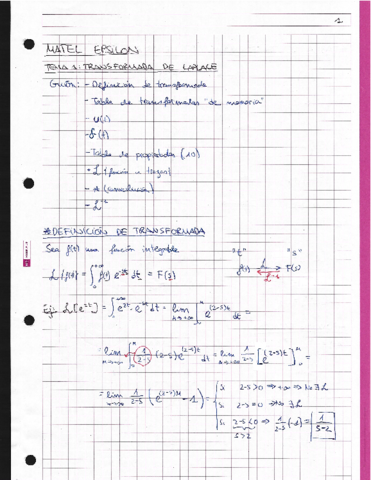 1
MATEL EPSILON
TEMA 1: TRANSFORMADA DE LAPLACE
Guión: - Definición de transformada
- Tabla de transformadas "de memoria"
- U(t)
- δ(t)
- Tabla de propiedades (10)
- L (función a trozos)
- * (convolución)
- L⁻¹
* DEFINICIÓN DE TRANSFORMADA
Sea f(t) una función integrable "t" "s"
L{f(t)} = ∫₀^{+∞} f(t) e^{-st} dt = F(s) f(t) L F(s) L⁻¹
Ej: L[e^{2t}] = ∫₀^{+∞} e^{2t} · e^{-st} dt = lim ∫₀ e^{(2-s)t} dt =
= lim ∫₀ 1/(2-s) (2-s) e^{(2-s)t} dt = lim 1/(2-s) [e^{(2-s)t}]₀ =
= lim 1/(2-s) (e^{(2-s)} - 1) = Si 2-s>0 ⇒ +∞ ⇒ No ∃ L
Si 2-s=0 ⇒ No ∃ L
Si 2-s<0 ⇒ 1/(2-s) (-1) = 1/(s-2)
s>2